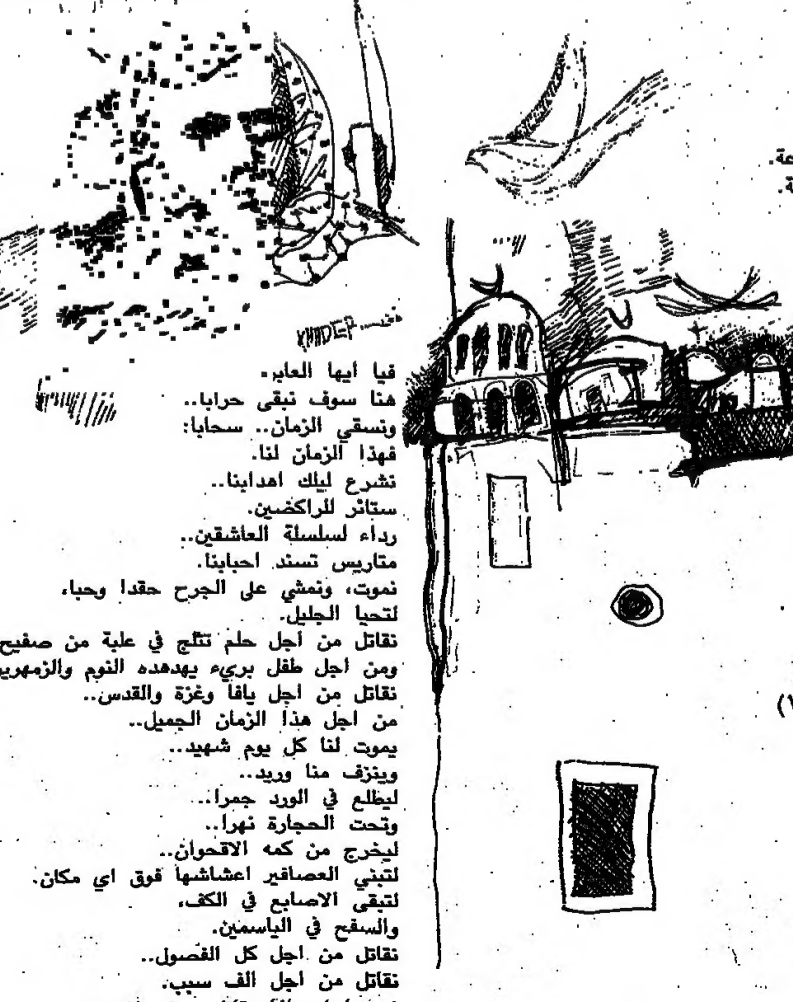 KHIDER خضير
فيا ايها العابر.
هنا سوف نبقى حرابا..
ونسقي الزمان.. سحابا:
فهذا الزمان لنا.
نشرع ليلك اهدابنا..
ستائر للراكضين.
رداء لسلسلة العاشقين..
متاريس تسند احبابنا.
نموت، ونمشي على الجرح حقدا وحبا،
لتحيا الجليل.
نقاتل من اجل حلم تثلج في علبة من صفيح
ومن اجل طفل بريء يهدهده النوم والزمهرير
نقاتل من اجل يافا وغزة والقدس..
من اجل هذا الزمان الجميل..
يموت لنا كل يوم شهيد..
وينزف منا وريد..
ليطلع في الورد جمرا..
وتحت الحجارة نهرا..
ليخرج من كمه الاقحوان..
لتبني العصافير اعشاشها فوق اي مكان.
لتبقى الاصابع في الكف،
والسفح في الياسمين.
نقاتل من اجل كل الفصول..
نقاتل من اجل الف سبب.